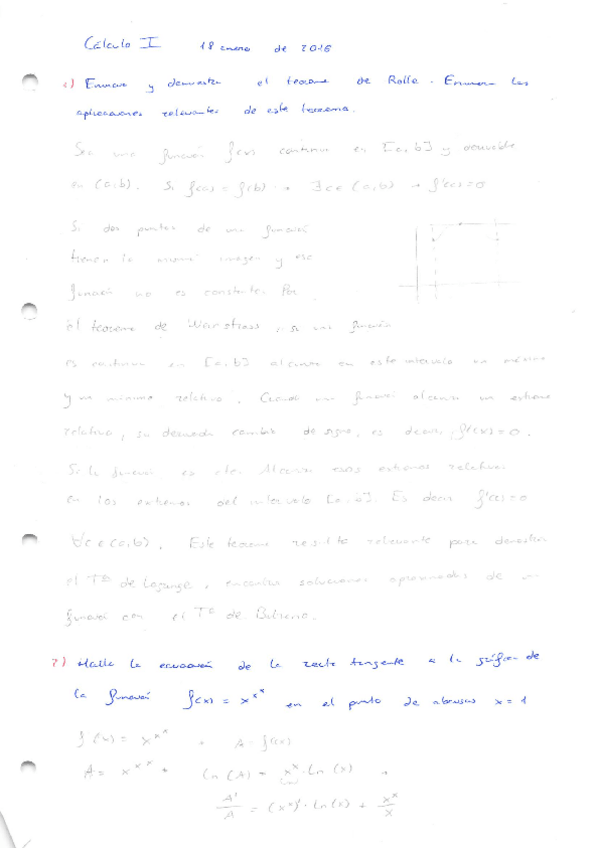 Cálculo I 18 enero de 2016
1) Enuncie y demuestre el teorema de Rolle. Enumere las
aplicaciones relevantes de este teorema.
Sea una función f(x) continua en [a,b] y derivable
en (a,b). Si f(a) = f(b) → ∃c∈(a,b) → f'(c)=0
Si dos puntos de una función
tienen la misma imagen y esa
función no es constante. Por
el teorema de Weirstrass, si una función
es continua en [a,b] alcanza en este intervalo un máximo
y un mínimo relativo. Cuando una función alcanza un extremo
relativo, su derivada cambia de signo, es decir, f'(x)=0.
Si la función es cte. Alcanza esos extremos relativos
en los extremos del intervalo [a,b]. Es decir f'(c)=0
∀c∈(a,b). Este teorema resulta relevante para demostrar
el Tª de Lagrange, encontrar soluciones aproximadas de una
función con el Tª de Bolzano.
2) Halle la ecuación de la recta tangente a la gráfica de
la función f(x) = x^x^x en el punto de abscisas x=1
f(x) = x^x^x → A=f(x)
A= x^x^x → ln(A) = x^x·ln(x) →
A'/A = (x^x)'·ln(x) + x^x/x